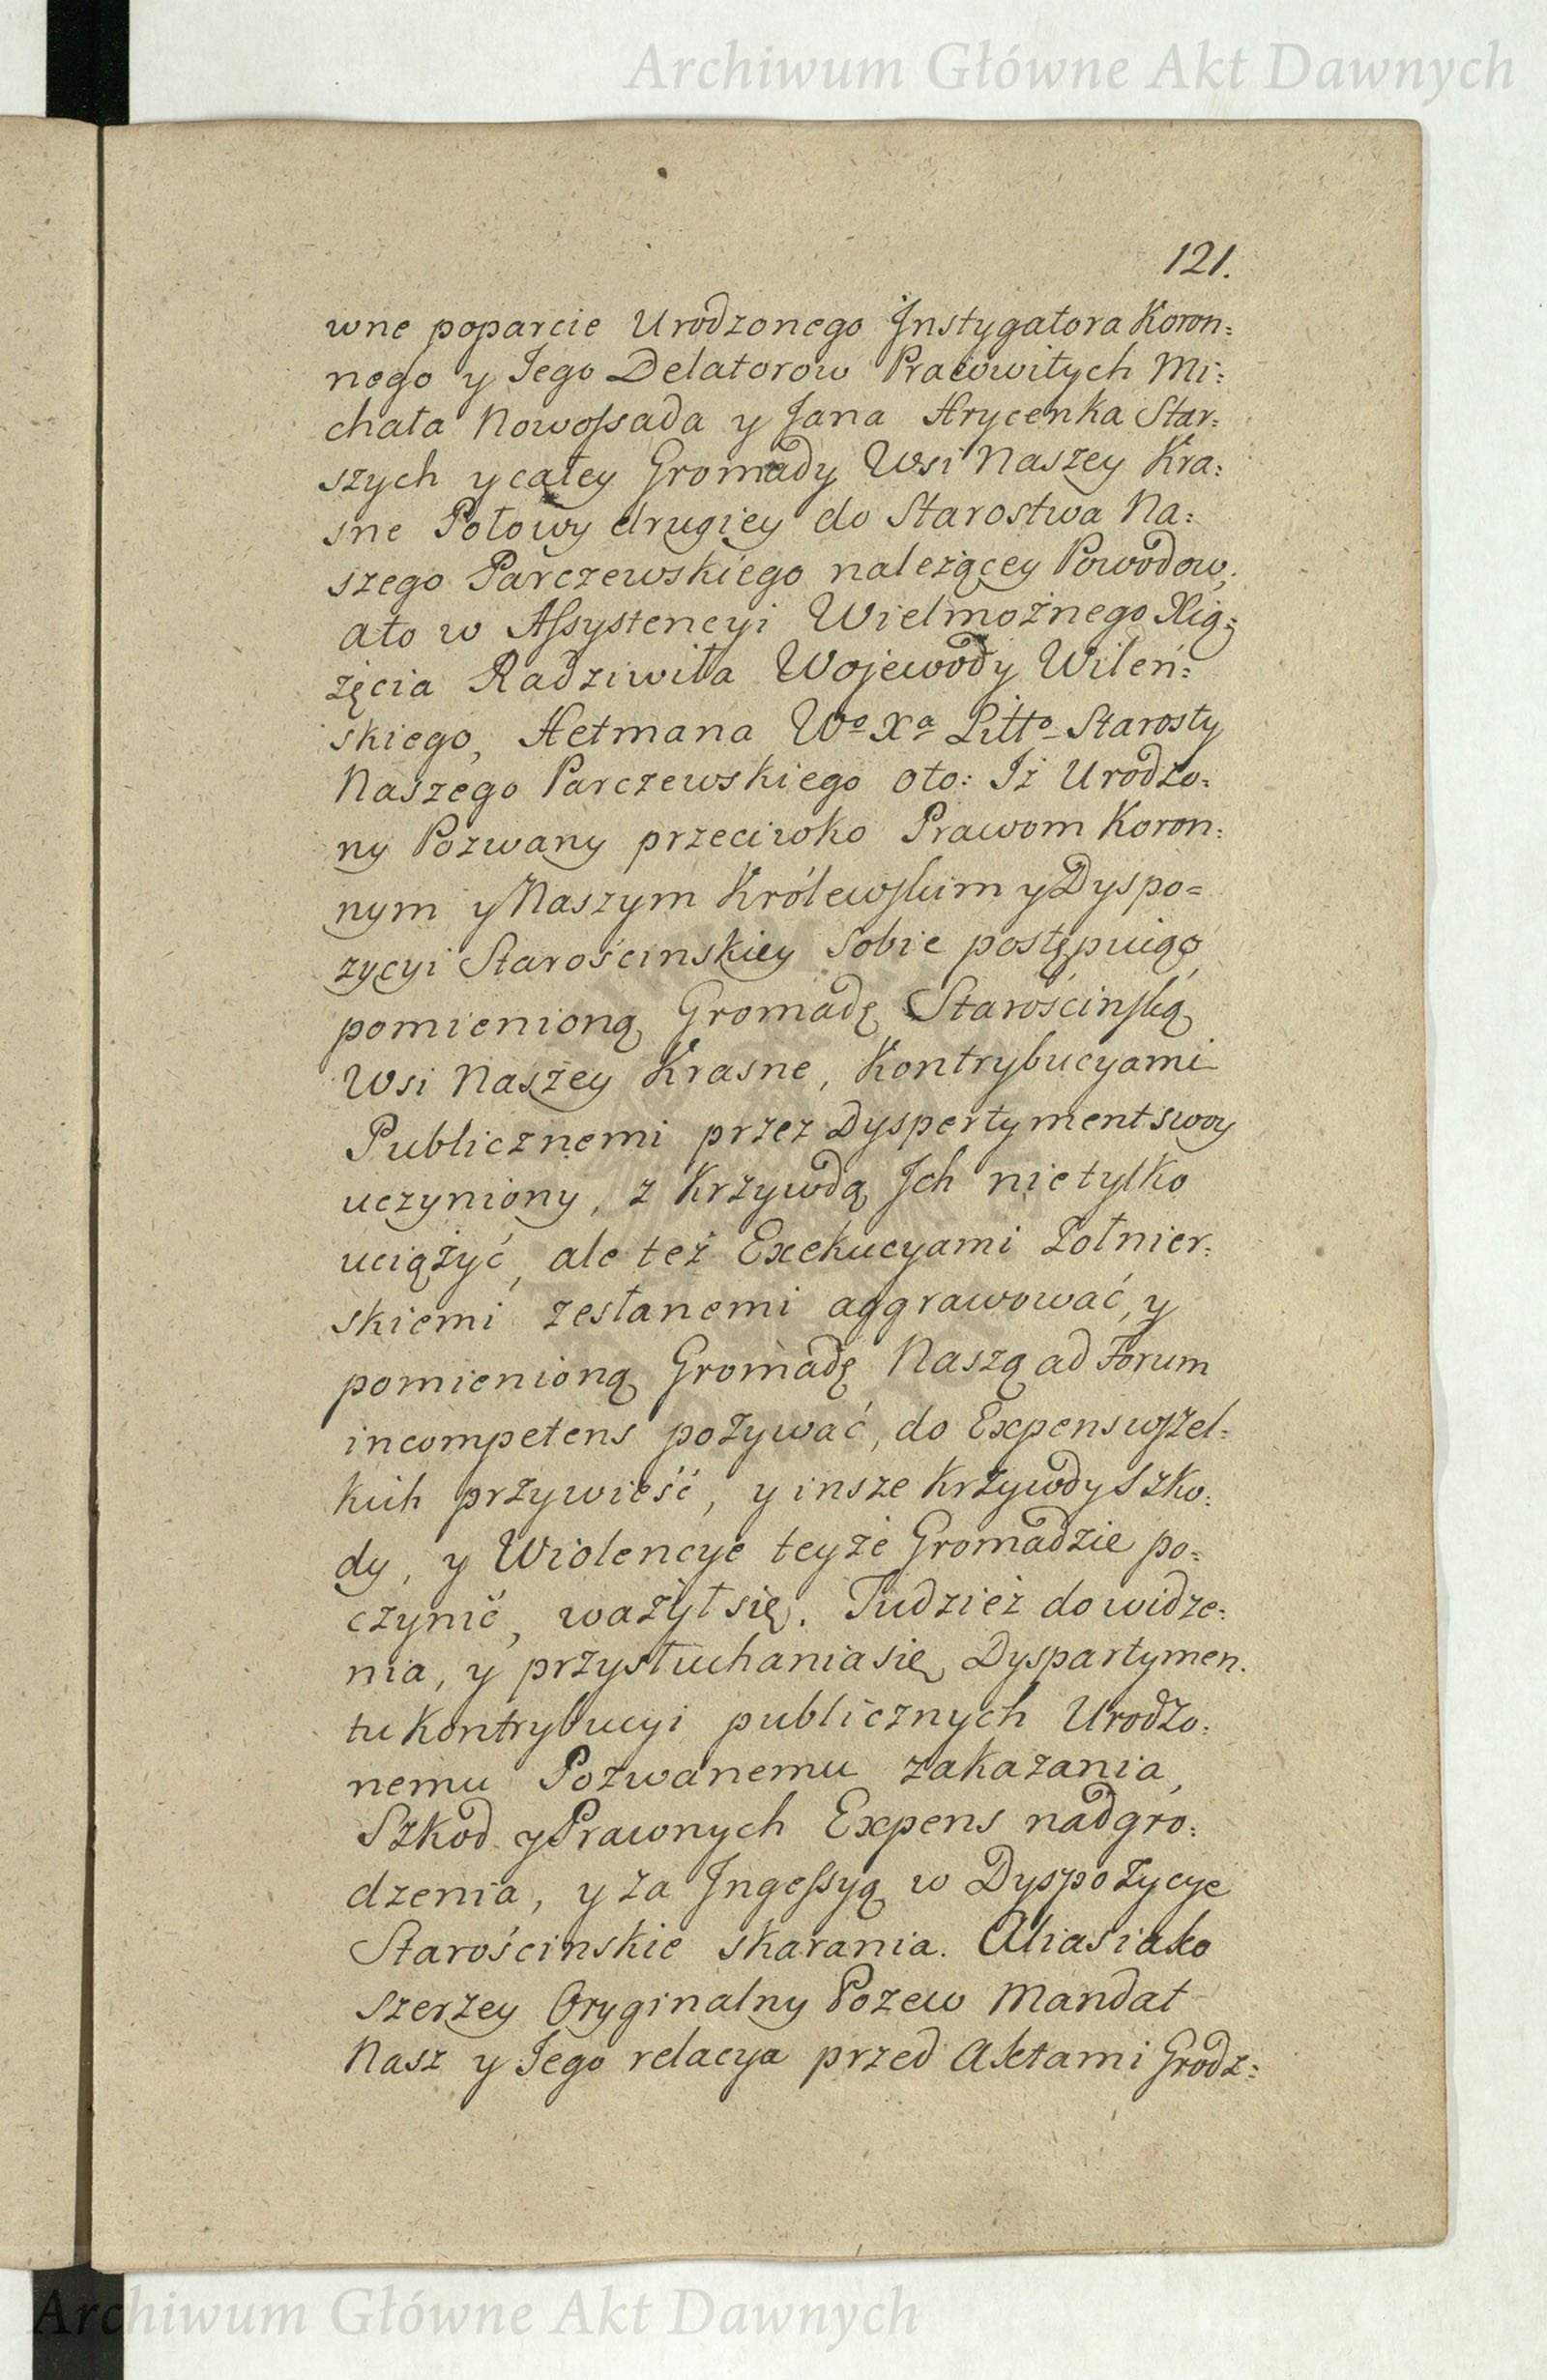 Archiwum Główne Akt Dawnych
121.
wne poparcie Urodzonego Jnstygatora Koron:
nego y Jego Delatorow Pracowitych Mi:
chała Nowoſsada y Jana Hrycenka Star:
szych y całey Gromady Wsi Naszey Kra:
sne Połowy drugiey do Starostwa Na:
szego Parczewskiego należącey Powodow,
ato w Aſsystencyi Wielmożnego Xią:
żęcia Radziwiła Wojewody Wileń:
skiego, Hetmana Wo Xa Litto Starosty
Naszego Parczewskiego oto: Iż Urodzo:
ny Pozwany przeciwko Prawom Koron:
nym y Naszym Królewſkim y Dyspo=
zycyi Starościnskiey Sobie postępuiąc,
pomienioną Gromadę Starościnſką
Wsi Naszey Krasne, Kontrybucyami
Publicznemi przez Dyspertyment swoy
uczyniony, z Krzywdą Jch nietylko
uciążyć, ale też Exekucyami Żołnier:
skiemi zesłanemi aggrawować, y
pomienioną Gromadę Naszą ad Forum
incompetens pozywać, do Expens wſzel:
kich przywieść, y insze krzywdy Szko:
dy, y Wiolencye teyże Gromadzie po:
czynić, ważył się. Tudzież do widze:
nia, y przysłuchania się Dyspartymen:
tu Kontrybucyi publicznych Urodzo:
nemu Pozwanemu zakazania,
Szkod y Prawnych Expens nadgro:
dzenia, y za Jngeſsyą w Dyspozycye
Starościnskie skarania. Alias iako
szerzey Oryginalny Pozew Mandat
Nasz y Jego relacya przed Aktami Grodz:
Archiwum Główne Akt Dawnych